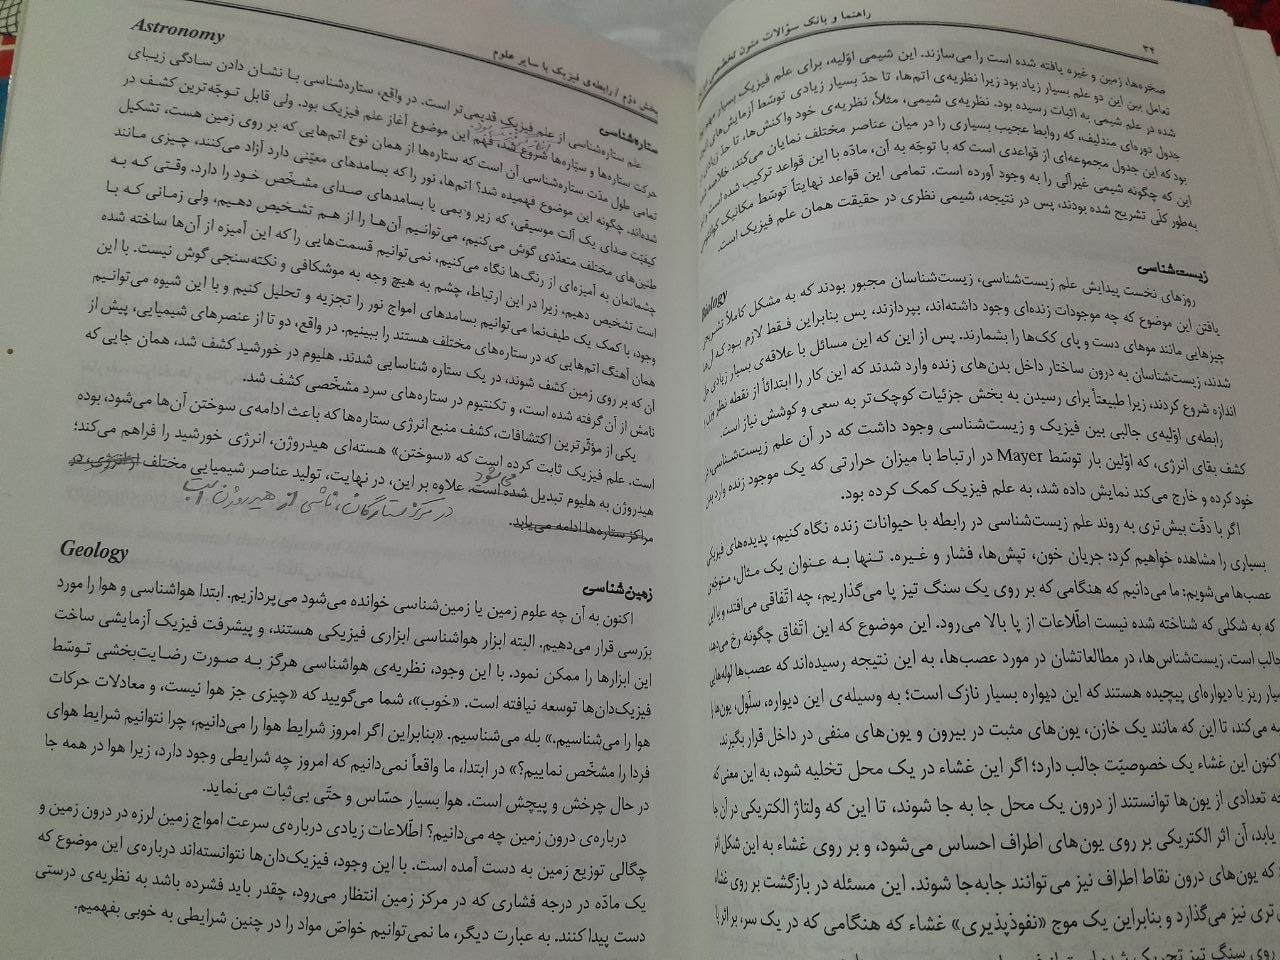 ۳۴
راهنما و بانک سؤالات متون تخصصی
صخره‌ها، زمین و غیره یافته شده است را می‌سازند. این شیمی اوّلیه، برای علم فیزیک بسیار
تعامل بین این دو علم بسیار زیاد بود زیرا نظریه‌ی اتم‌ها، تا حدّ بسیار زیادی توسّط آزمایش‌های
شده در علم شیمی به اثبات رسیده بود. نظریه‌ی شیمی، مثلاً، نظریه‌ی خود واکنش‌ها، تا حدّ زیادی
جدول دوره‌ای مندلیف، که روابط عجیب بسیاری را در میان عناصر مختلف نمایان می‌کند، خلاصه
بود که این جدول مجموعه‌ای از قواعدی است که با توجّه به آن، مادّه با این قواعد ترکیب شده است
این که چگونه شیمی غیرآلی را به وجود آورده است. تمامی این قواعد نهایتاً توسّط مکانیک
به‌طور کلّی تشریح شده بودند، پس در نتیجه، شیمی نظری در حقیقت همان علم فیزیک است.
زیست‌شناسی
Biology
روزهای نخست پیدایش علم زیست‌شناسی، زیست‌شناسان مجبور بودند که به مشکل کاملاً
یافتن این موضوع که چه موجودات زنده‌ای وجود داشته‌اند، بپردازند، پس بنابراین فقط لازم بود که
چیزهایی مانند موهای دست و پای کک‌ها را بشمارند. پس از این که این مسائل با علاقه‌ی بسیار زیادی
شدند، زیست‌شناسان به درون ساختار داخل بدن‌های زنده وارد شدند که این کار را ابتدائاً از نقطه نظر
اندازه شروع کردند، زیرا طبیعتاً برای رسیدن به بخش جزئیات کوچک‌تر به سعی و کوشش نیاز است.
رابطه‌ی اوّلیه‌ی جالبی بین فیزیک و زیست‌شناسی وجود داشت که در آن علم زیست‌شناسی،
کشف بقای انرژی، که اوّلین بار توسّط Mayer در ارتباط با میزان حرارتی که یک موجود زنده وارد
خود کرده و خارج می‌کند نمایش داده شد، به علم فیزیک کمک کرده بود.
اگر با دقّت بیش‌تری به روند علم زیست‌شناسی در رابطه با حیوانات زنده نگاه کنیم، پدیده‌های فیزیکی
بسیاری را مشاهده خواهیم کرد: جریان خون، تپش‌ها، فشار و غیره. تنها به عنوان یک مثال، متوجّه
عصب‌ها می‌شویم: ما می‌دانیم که هنگامی که بر روی یک سنگ تیز پا می‌گذاریم، چه اتّفاقی می‌افتد، و یا این
که به شکلی که شناخته شده نیست اطّلاعات از پا بالا می‌رود. این موضوع که این اتّفاق چگونه رخ می‌دهد
جالب است. زیست‌شناس‌ها، در مطالعاتشان در مورد عصب‌ها، به این نتیجه رسیده‌اند که عصب‌ها لوله‌هایی
ریز با دیواره‌ای پیچیده هستند که این دیواره بسیار نازک است؛ به وسیله‌ی این دیواره، سلّول، یون‌ها را
می‌کند، تا این که مانند یک خازن، یون‌های مثبت در بیرون و یون‌های منفی در داخل قرار بگیرند.
اکنون این غشاء یک خصوصیّت جالب دارد؛ اگر این غشاء در یک محل تخلیه شود، به این معنی که
تعدادی از یون‌ها توانستند از درون یک محل جا به جا شوند، تا این که ولتاژ الکتریکی در آن جا
یابد، آن اثر الکتریکی بر روی یون‌های اطراف احساس می‌شود، و بر روی غشاء به این شکل اثر
که یون‌های درون نقاط اطراف نیز می‌توانند جابه‌جا شوند. این مسئله در بازگشت بر روی غشاء
تری نیز می‌گذارد و بنابراین یک موج «نفوذپذیری» غشاء که هنگامی که در یک سر، بر اثر پا
روی سنگ تیز تحریک شده است
بخش دوّم / رابطه‌ی فیزیک با سایر علوم
ستاره‌شناسی
Astronomy
علم ستاره‌شناسی از علم فیزیک قدیمی‌تر است. در واقع، ستاره‌شناسی با نشان دادن سادگی زیبای
حرکت ستاره‌ها و سیّاره‌ها شروع شد، فهم این موضوع آغاز علم فیزیک بود. ولی قابل توجّه‌ترین کشف در
تمامی طول مدّت ستاره‌شناسی آن است که ستاره‌ها از همان نوع اتم‌هایی که بر روی زمین هست، تشکیل
شده‌اند. چگونه این موضوع فهمیده شد؟ اتم‌ها، نور را که بسامدهای معیّنی دارد آزاد می‌کنند، چیزی مانند
کیفیّت صدای یک آلت موسیقی، که زیر و بمی یا بسامدهای صدای مشخّص خود را دارد. وقتی که به
طنین‌های مختلف متعدّدی گوش می‌کنیم، می‌توانیم آن‌ها را از هم تشخیص دهیم، ولی زمانی که با
چشمانمان به آمیزه‌ای از رنگ‌ها نگاه می‌کنیم، نمی‌توانیم قسمت‌هایی را که این آمیزه از آن‌ها ساخته شده
است تشخیص دهیم، زیرا در این ارتباط، چشم به هیچ وجه به موشکافی و نکته‌سنجی گوش نیست. با این
وجود، با کمک یک طیف‌نما می‌توانیم بسامدهای امواج نور را تجزیه و تحلیل کنیم و با این شیوه می‌توانیم
همان آهنگ اتم‌هایی که در ستاره‌های مختلف هستند را ببینیم. در واقع، دو تا از عنصرهای شیمیایی، پیش از
آن که بر روی زمین کشف شوند، در یک ستاره شناسایی شدند. هلیوم در خورشید کشف شد، همان جایی که
نامش از آن گرفته شده است، و تکنتیوم در ستاره‌های سرد مشخّصی کشف شد.
یکی از مؤثّرترین اکتشافات، کشف منبع انرژی ستاره‌ها که باعث ادامه‌ی سوختن آن‌ها می‌شود، بوده
است. علم فیزیک ثابت کرده است که «سوختن» هسته‌ای هیدروژن، انرژی خورشید را فراهم می‌کند؛
می‌شود
هیدروژن به هلیوم تبدیل شده است. علاوه بر این، در نهایت، تولید عناصر شیمیایی مختلف از انرژی، در
در مرکز ستارگان، ناشی از هیدروژن است
مراکز ستاره‌ها ادامه می‌یابد.
زمین‌شناسی
Geology
اکنون به آن چه علوم زمین یا زمین‌شناسی خوانده می‌شود می‌پردازیم. ابتدا هواشناسی و هوا را مورد
بررسی قرار می‌دهیم. البته ابزار هواشناسی ابزاری فیزیکی هستند، و پیشرفت فیزیک آزمایشی ساخت
این ابزارها را ممکن نمود. با این وجود، نظریه‌ی هواشناسی هرگز به صورت رضایت‌بخشی توسّط
فیزیک‌دان‌ها توسعه نیافته است. «خوب»، شما می‌گویید که «چیزی جز هوا نیست، و معادلات حرکات
هوا را می‌شناسیم.» بله می‌شناسیم. «بنابراین اگر امروز شرایط هوا را می‌دانیم، چرا نتوانیم شرایط هوای
فردا را مشخّص نماییم؟» در ابتدا، ما واقعاً نمی‌دانیم که امروز چه شرایطی وجود دارد، زیرا هوا در همه جا
در حال چرخش و پیچش است. هوا بسیار حسّاس و حتّی بی‌ثبات می‌نماید.
درباره‌ی درون زمین چه می‌دانیم؟ اطّلاعات زیادی درباره‌ی سرعت امواج زمین لرزه در درون زمین و
چگالی توزیع زمین به دست آمده است. با این وجود، فیزیک‌دان‌ها نتوانسته‌اند درباره‌ی این موضوع که
یک مادّه در درجه فشاری که در مرکز زمین انتظار می‌رود، چقدر باید فشرده باشد به نظریه‌ی درستی
دست پیدا کنند. به عبارت دیگر، ما نمی‌توانیم خواصّ مواد را در چنین شرایطی به خوبی بفهمیم.